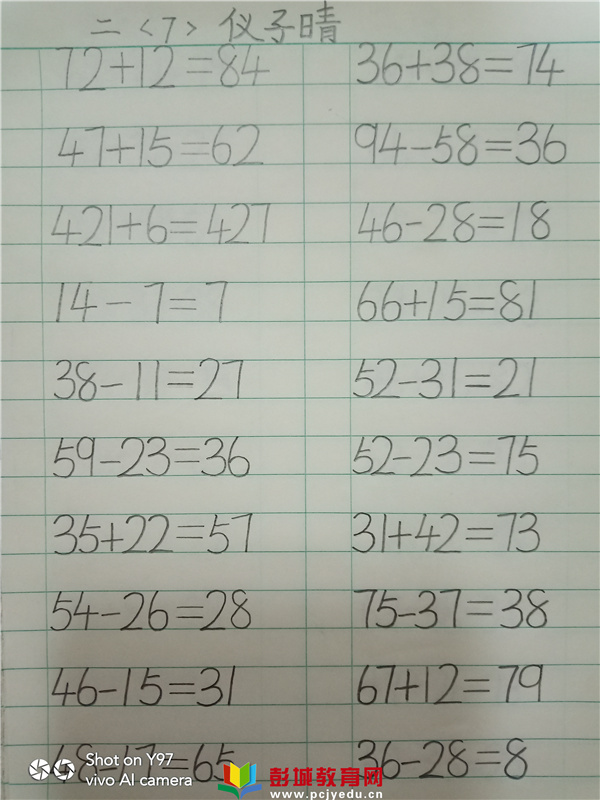 二〈7〉 仪子晴
72+12=84 36+38=74
47+15=62 94-58=36
421+6=427 46-28=18
14-7=7 66+15=81
38-11=27 52-31=21
59-23=36 52-23=75
35+22=57 31+42=73
54-26=28 75-37=38
46-15=31 67+12=79
48-17=65 36-28=8
Shot on Y97
vivo AI camera
彭城教育网
www.pcjyedu.cn